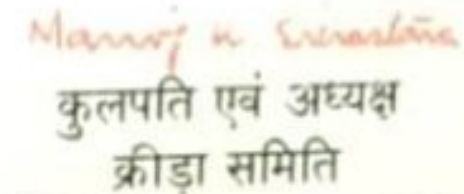 Manoj K Srivastava
कुलपति एवं अध्यक्ष
क्रीड़ा समिति